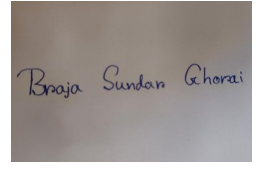 Braja Sundar Ghorai